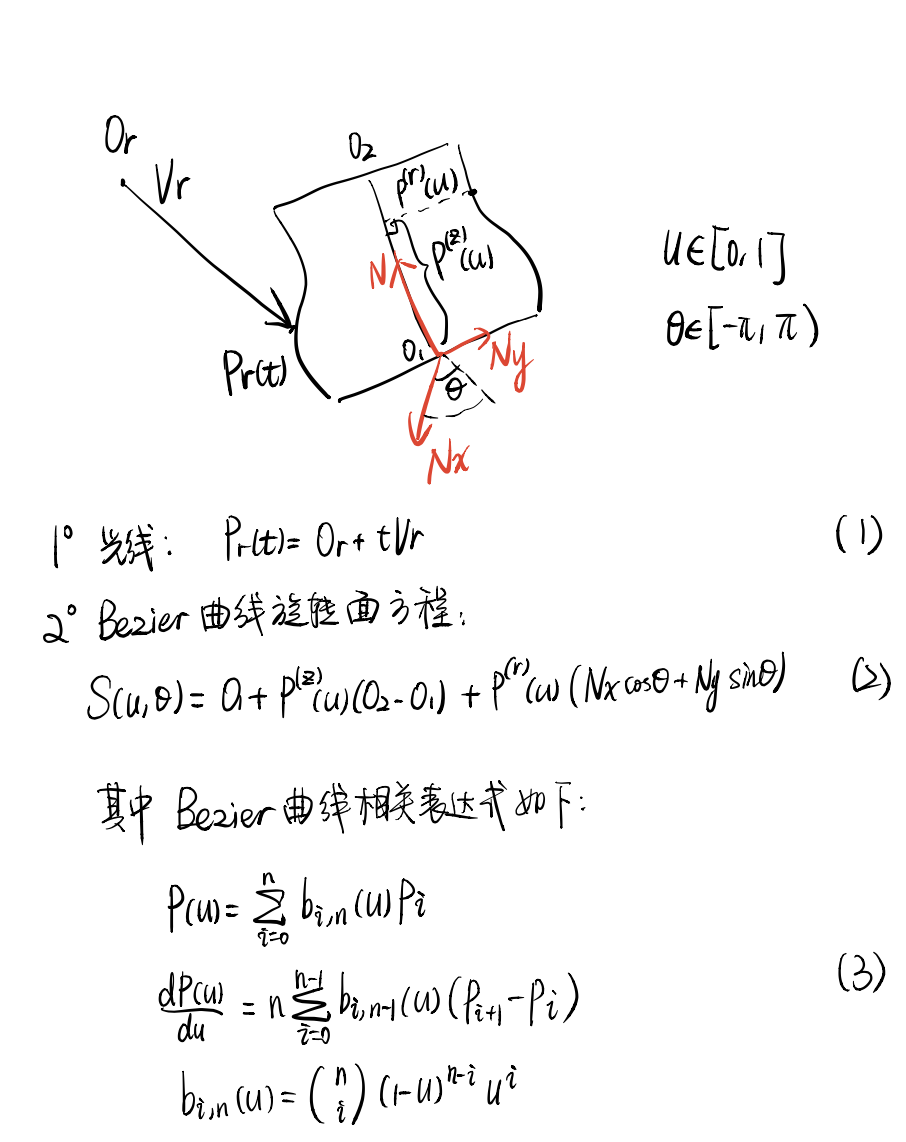 Or
Vr
O₂
P⁽ʳ⁾(u)
P⁽ᶻ⁾(u)
N
O₁
Ny
θ
Nx
Pr(t)
u∈[0,1]
θ∈[-π,π)
1° 光线: Pr(t)= Or+tVr (1)
2° Bezier曲线旋转面方程:
S(u,θ)= O₁+P⁽ᶻ⁾(u)(O₂-O₁)+P⁽ʳ⁾(u)(Nx cosθ+Ny sinθ) (2)
其中 Bezier曲线相关表达式如下:
P(u)= ∑_{i=0}^{n} b_{i,n}(u)P_i
dP(u)/du = n∑_{i=0}^{n-1} b_{i,n-1}(u)(P_{i+1}-P_i) (3)
b_{i,n}(u)= (n i)(1-u)^{n-i} u^i